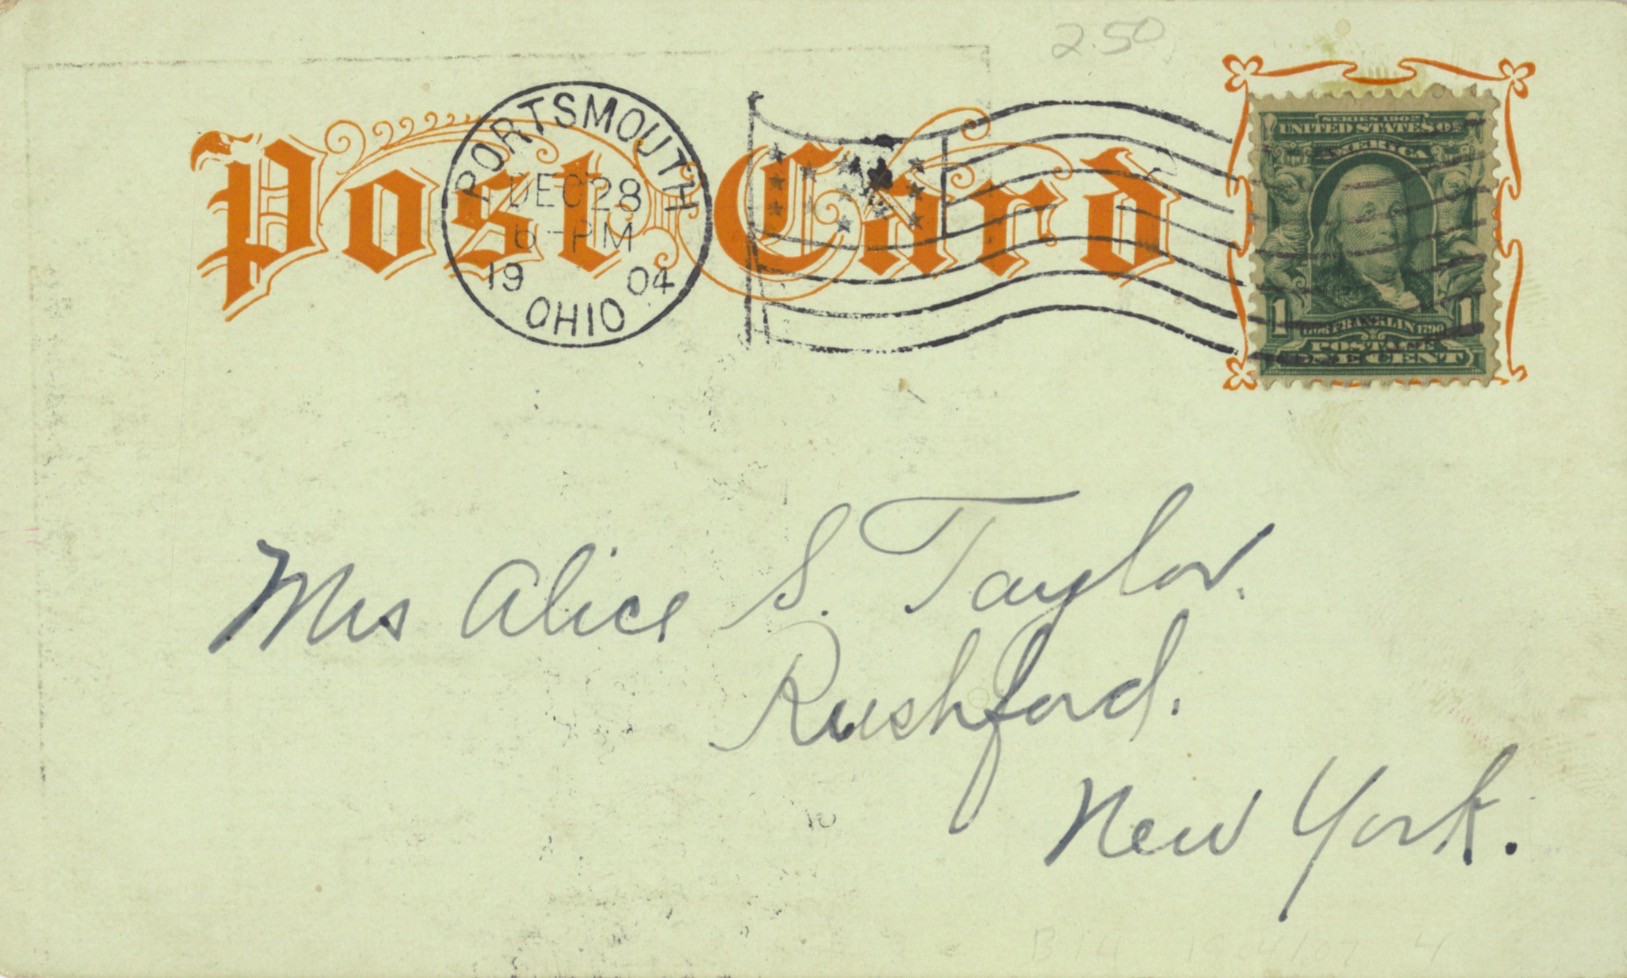 2.50
Post Card
PORTSMOUTH
DEC 28
6-PM
19 04
OHIO
SERIES 1902
UNITED STATES OF
AMERICA
1 1706 FRANKLIN 1790 1
POSTAGE
ONE CENT
Mrs Alice S. Taylor.
Rushford.
New York.